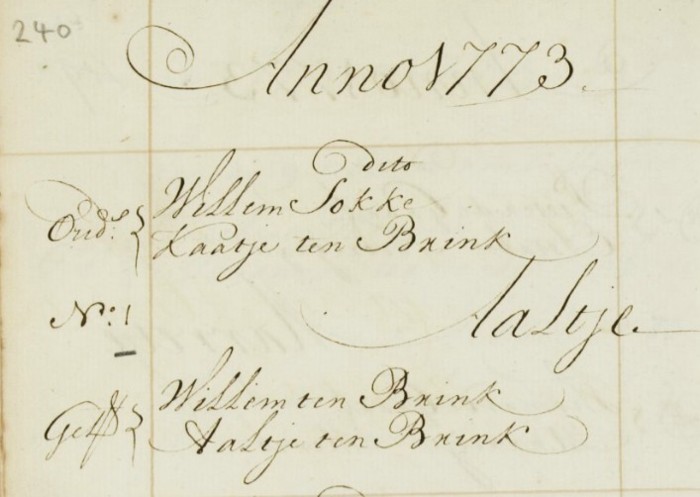 240
Anno 1773.
dito
Oud.s { Willem Sokke
Kaatje ten Brink
No: 1 Aaltje.
Willem ten Brink
Aaltje ten Brink